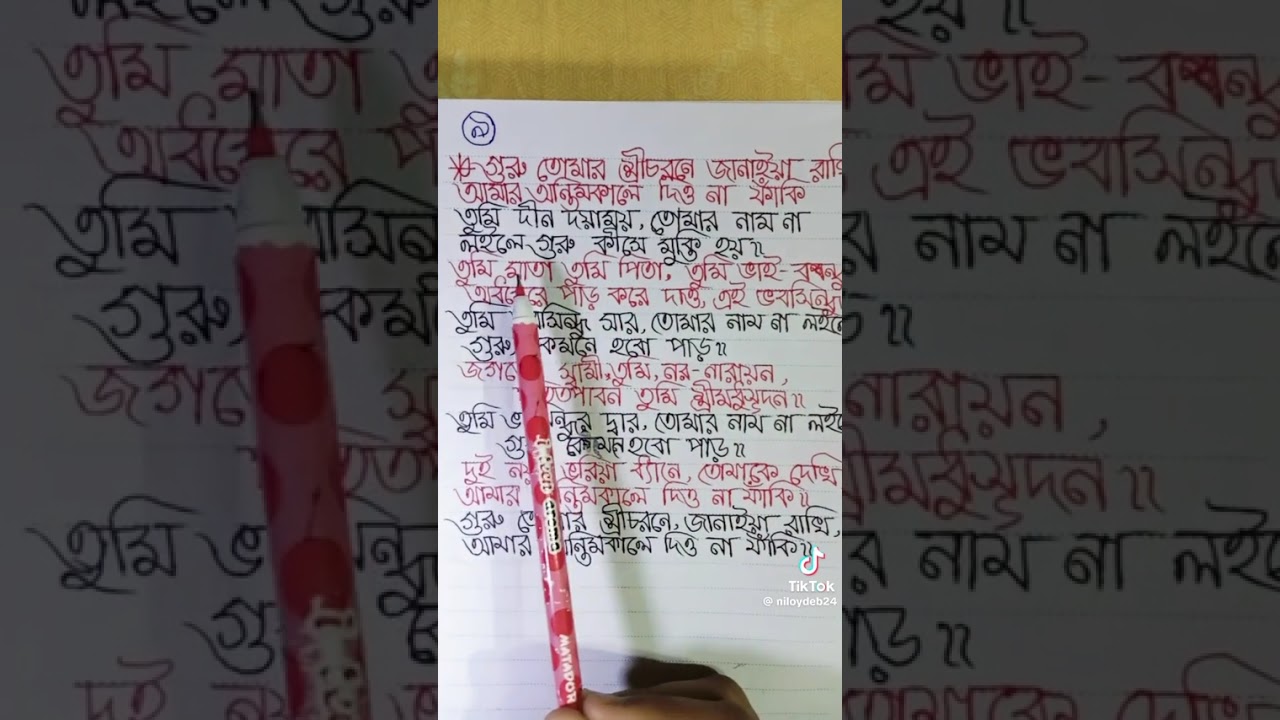 ৯
* গুরু তোমার শ্রীচরনে জানাইয়া রাখি
আমার অন্তিমকালে দিও না ফাঁকি
তুমি দীন দয়াময়, তোমার নাম না
লইলে গুরু কীসে মুক্তি হয়॥
তুমি মাতা তুমি পিতা, তুমি ভাই-বন্ধু
পাড় করে দাও, এই ভবসিন্ধু
তুমি সার, তোমার নাম না লইলে
গুরু কেমনে হবো পাড়॥
স্বামী, তুমি, নর-নারায়ন,
তুমি শ্রীমধুসূদন॥
তুমি দ্বার, তোমার নাম না লইলে
কেমনে হবো পাড়॥
দুই ভরিয়া ধ্যানে, তোমাকে দেখি
আমার অন্তিমকালে দিও না ফাঁকি॥
গুরু শ্রীচরনে, জানাইয়া রাখি,
আমার অন্তিমকালে দিও না ফাঁকি॥
TikTok
@niloydeb24
MATADOR